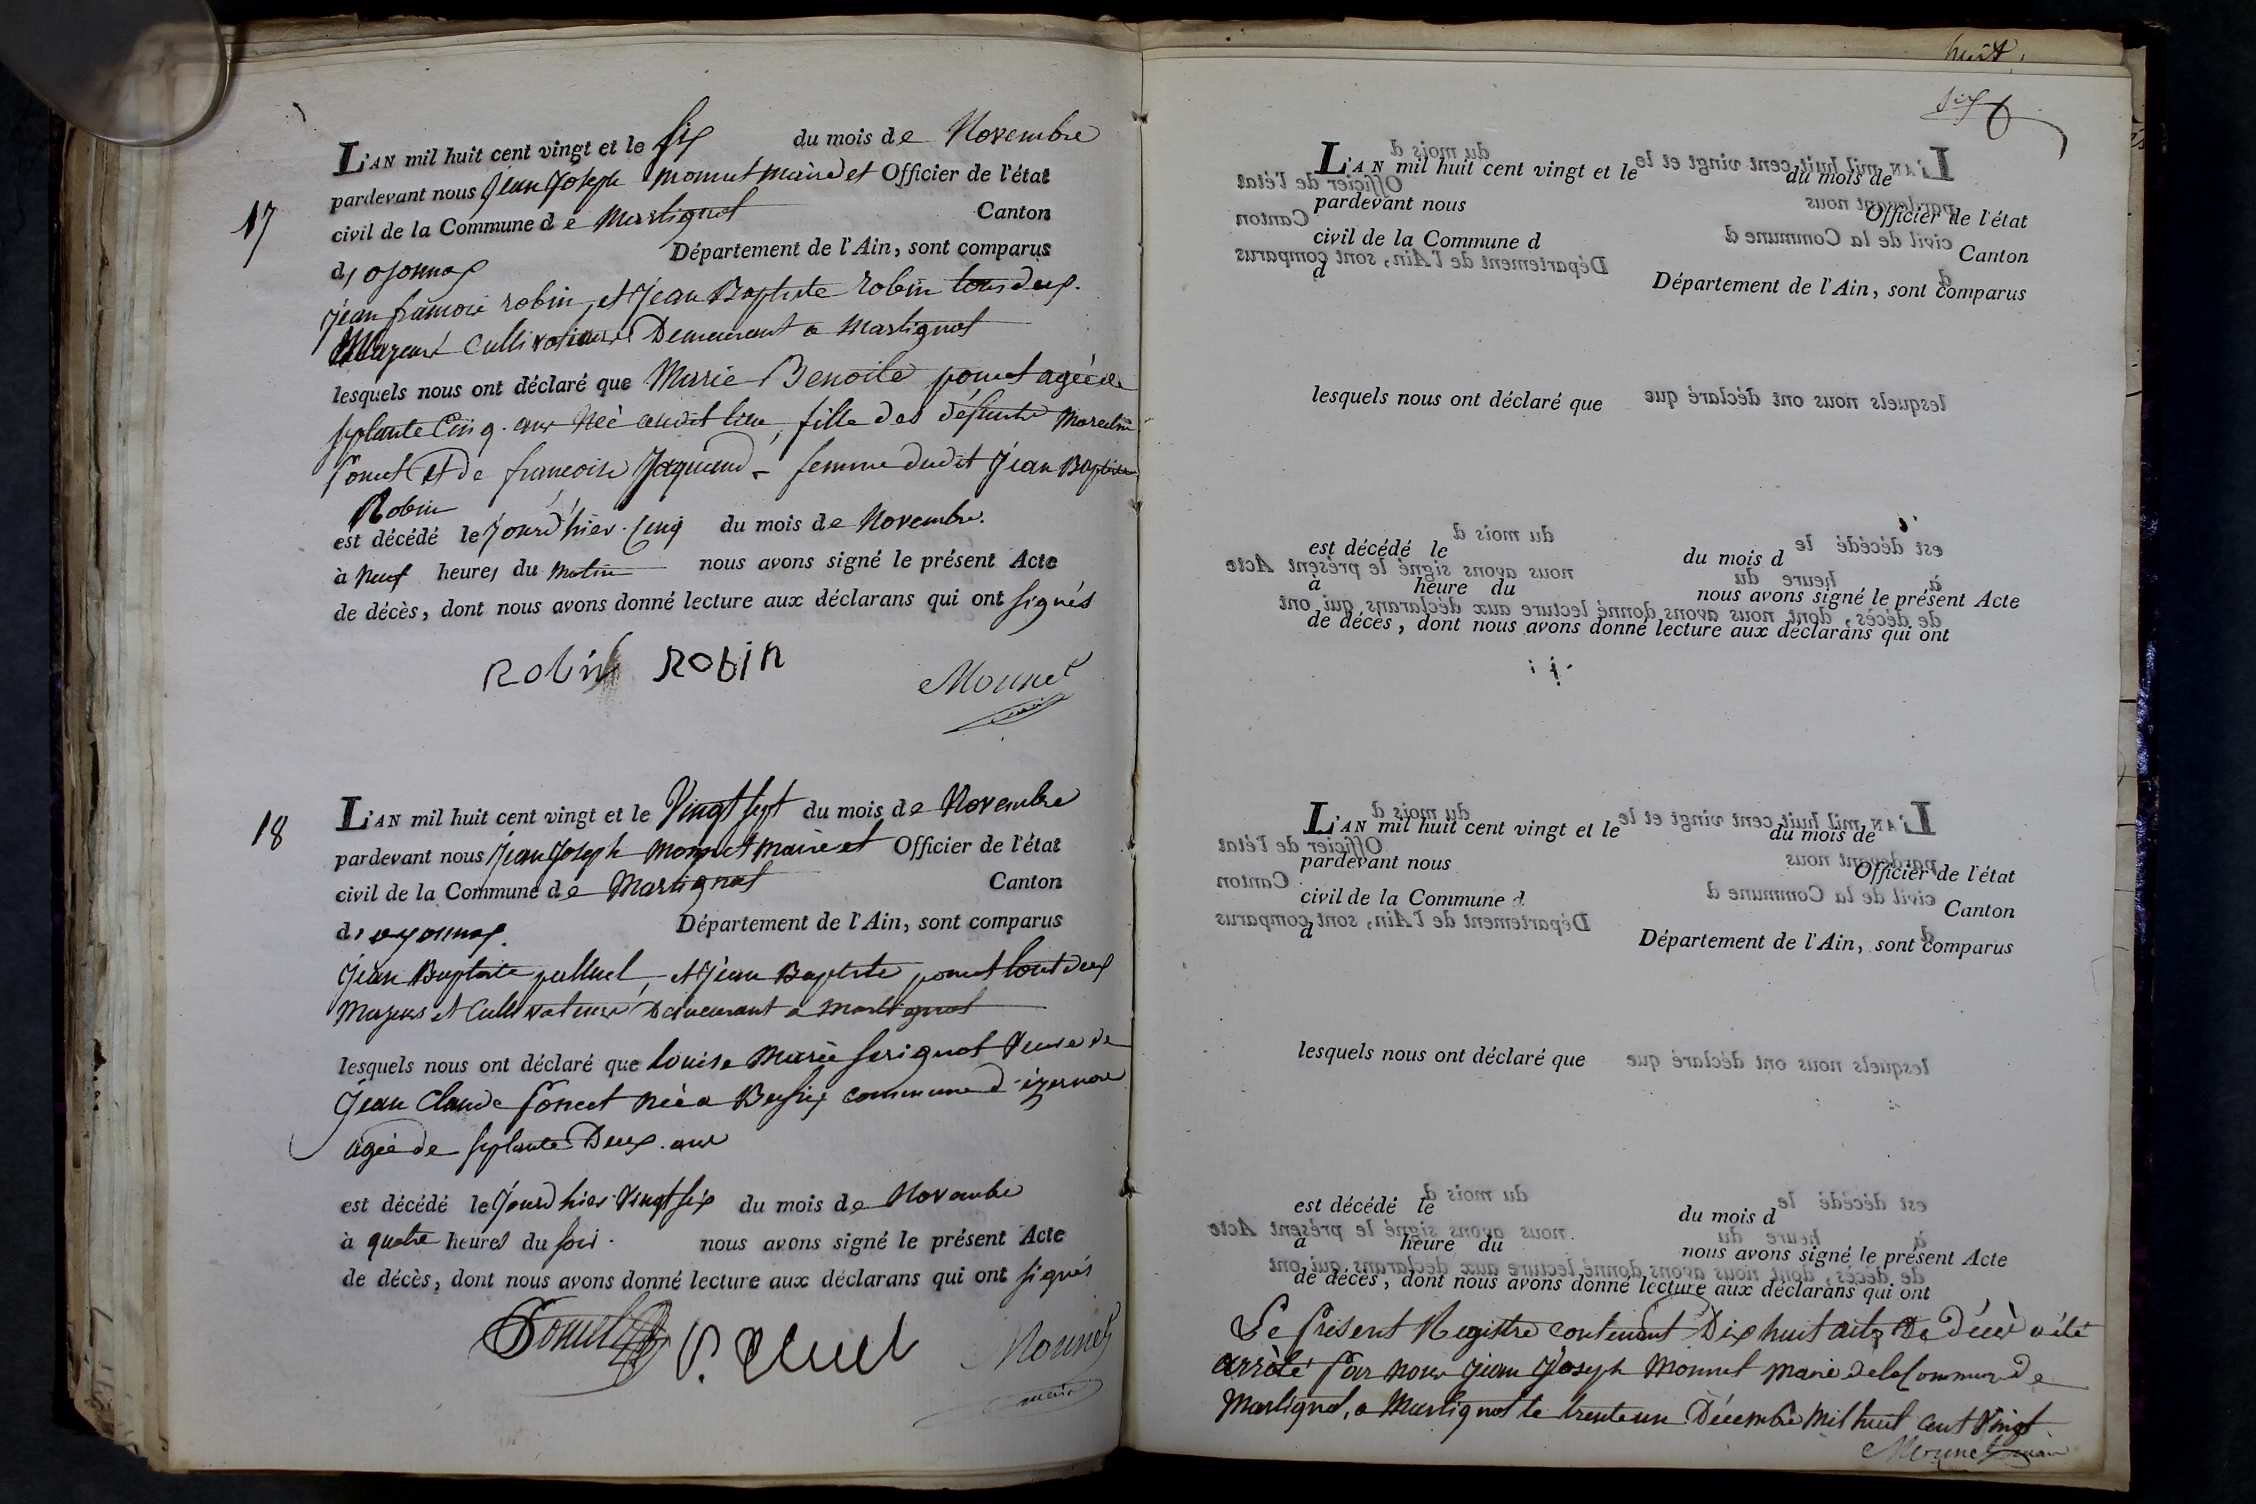 17
L'AN mil huit cent vingt et le six du mois de Novembre
pardevant nous Jean Joseph monnet maire et Officier de l'état
civil de la Commune de Martignat Canton
d, ojonnax Département de l'Ain, sont comparus
jean francois robin, et Jean Baptiste robin tous deux
Majeurs Cultivateurs Demeurant a Martignat
lesquels nous ont déclaré que Marie Benoite ponset agée de
septante Cinq ans Neé audit lieu, fille des défunts
ponset Et de francoise Jaquand - femme dudit Jean Baptiste
Robin
est décédé le Jourd'hier Cinq du mois de Novembre.
à Neuf heures du matin nous avons signé le présent Acte
de décès, dont nous avons donné lecture aux déclarans qui ont signés
Robin Robin Monnet
maire
18
L'AN mil huit cent vingt et le Vingt sept du mois de Novembre
pardevant nous Jean Joseph Monnet maire et Officier de l'état
civil de la Commune de Martignat Canton
d, oyonnax. Département de l'Ain, sont comparus
Jean Baptiste pelluel, et Jean Baptiste ponset tout deux
Majeurs et Cultivateurs Demeurant a Martignat
lesquels nous ont déclaré que Louise Marie serignat Veuve de
Jean Claude Ponset Neé a commune d'izernore
agée de septante Deux ans
est décédé le Jourd hier Vingt six du mois de Novembre
à quatre heures du soir. nous avons signé le présent Acte
de décès, dont nous avons donné lecture aux déclarans qui ont signés
Monnet
maire
huit
six
6
L'AN mil huit cent vingt et le du mois de
pardevant nous Officier de l'état
civil de la Commune d Canton
d Département de l'Ain, sont comparus
lesquels nous ont déclaré que
est décédé le du mois d
à heure du nous avons signé le présent Acte
de décès, dont nous avons donné lecture aux déclarans qui ont
L'AN mil huit cent vingt et le du mois de
pardevant nous Officier de l'état
civil de la Commune d Canton
d Département de l'Ain, sont comparus
lesquels nous ont déclaré que
est décédé le du mois d
à heure du nous avons signé le présent Acte
de décès, dont nous avons donné lecture aux déclarans qui ont
Le Present Registre contenant Dix huit De décès a été
arrêté Par nous Jean Joseph Monnet Maire de la Commune de
Martignat, a Martignat le trente un Décembre Mil huit cent Vingt
Monnet maire